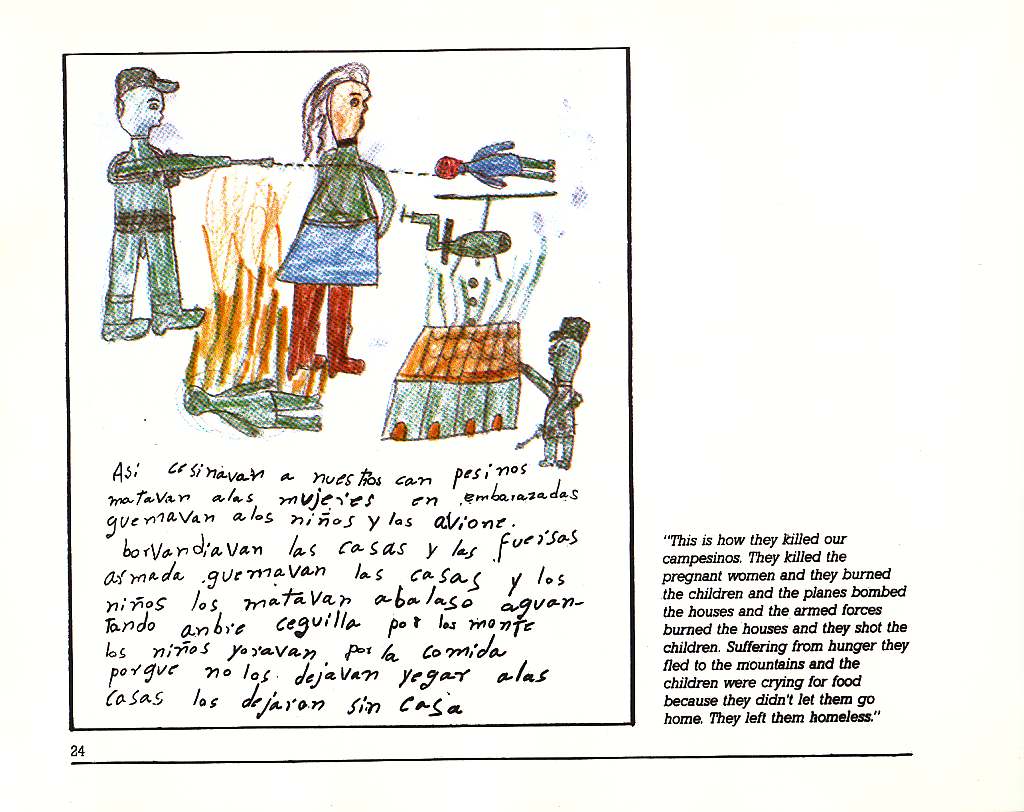 Así cesinavan a nuestros can pesinos
matavan alas mujeres en embarazadas
guemavan alos niños y los avione.
borvandiavan las casas y las fuersas
armada guemavan las casas y los
niños los matavan abalaso aguan-
tando anbre ceguilla por los monte
los niños yoravan por la comida
porgue no los dejavan yegar alas
casas los dejaron sin casa
"This is how they killed our
campesinos. They killed the
pregnant women and they burned
the children and the planes bombed
the houses and the armed forces
burned the houses and they shot the
children. Suffering from hunger they
fled to the mountains and the
children were crying for food
because they didn't let them go
home. They left them homeless."
24